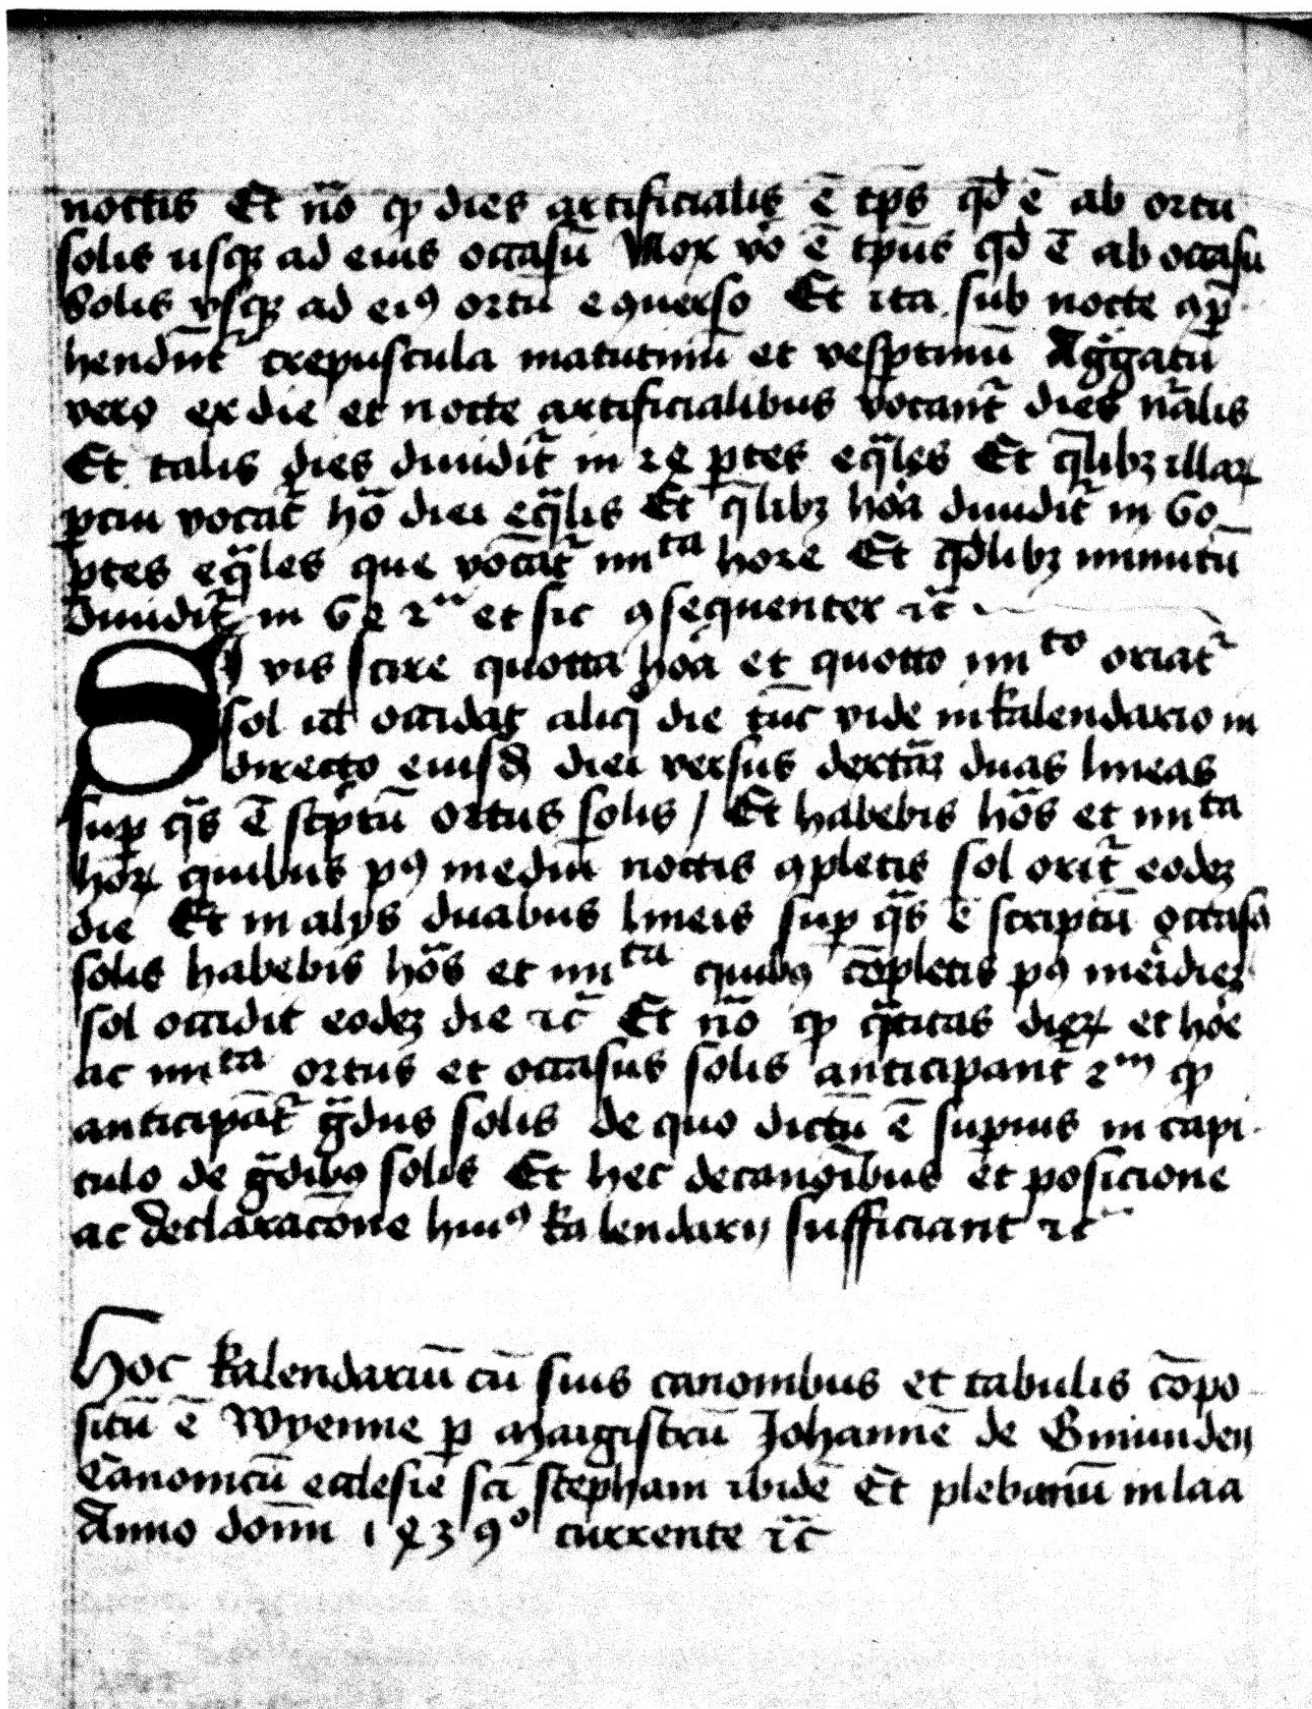 noctis Et nō ꝙ dies artificialis ē tp̄s qd̄ ē ab ortu
solis usqꝫ ad eius occasū Nox vo ē tpūs qd̄ ē ab occasu
Solis vsqꝫ ad eiꝰ ortū e ꝯuerso Et ita sub nocte ꝯp̄
hendūt crepuscula matutinū et vesptinū Aggatū
vero ex die et nocte artificialibus vocant̄ dies nālis
Et talis dies diuidit̄ in 24 ꝑtes eq̄les Et q̄libꝫ illaꝝ
ꝑciū vocat̄ hō diei eq̄lis Et q̄libꝫ hoa diuidit̄ in 60
ꝑtes eq̄les que vocāt̄ miᵗᵃ hore Et qd̄libꝫ minutū
diuidit̄ in 60 2ᵃ et sic ꝯsequenter ⁊c̄
Si vis scire quotta hoa et quotto miᵗᵒ oriat̄
sol uł occidat aliq̊ die tūc vide in kalendario in
directo eiusdē diei versus dextāꝫ duas lineas
suꝑ q̄s ē scptū ortus solis / Et habebis hōs et miᵗᵃ
hoꝝ quibus pꝰ mediū noctis ꝯpletis sol orit̄ eodeꝫ
die Et in alijs duabus lineis suꝑ q̄s ē scriptū occasꝰ
solis habebis hōs et miᵗᵃ quibꝰ cōpletis pꝰ meridieꝫ
sol occidit eodeꝫ die ⁊c̄ Et nō ꝙ q̄titas dieꝝ et hoe
ac miᵗᵃ ortus et occasus solis anticipant̄ 2ᵐ ꝙ
anticipāt̄ gdus solis de quo dictū ē suꝑius in capi
tulo de gdibꝰ solis Et hec de canoībus et posicione
ac declaracōne huiꝰ kalendarij sufficiant ⁊c̄
Hoc kalendariū cū suis canonibus et tabulis cōpo
sitū ē Wyenne ꝑ Maigistrū Johannē de Gmunden
Canonicū ecclesie sci stephani ibidē Et plebanū in laa
Anno domī 1439° currente ⁊c̄